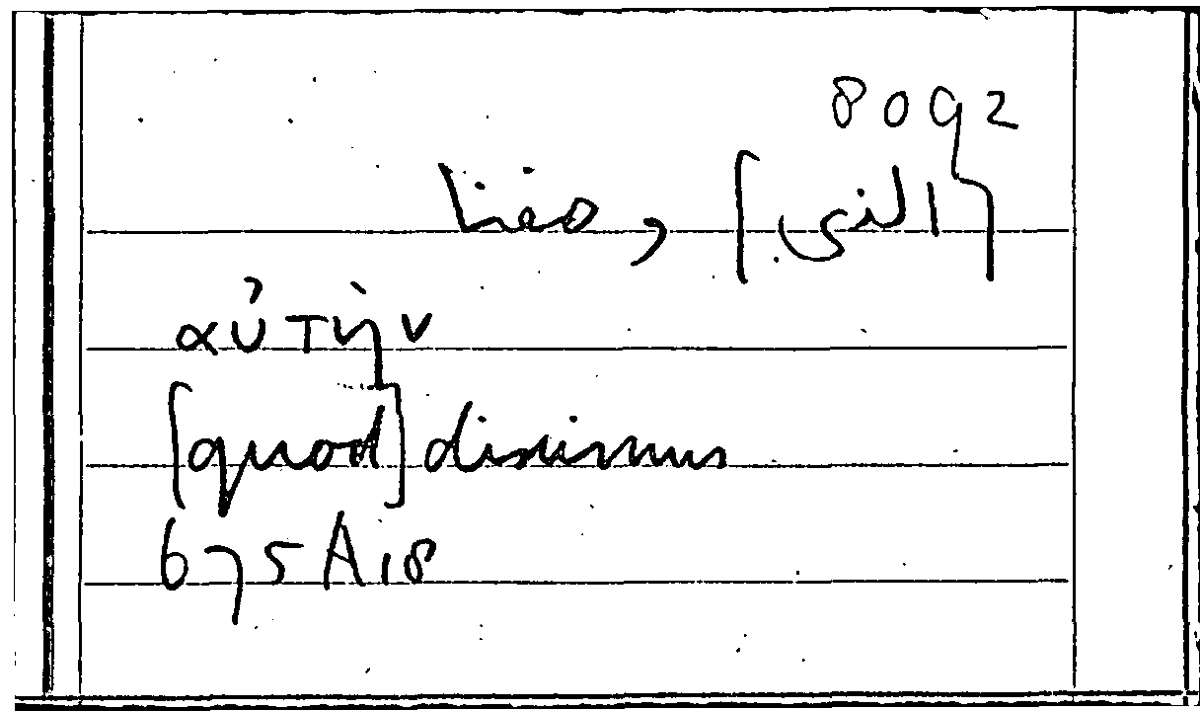 8092
[التى] وصفنا
αὐτὴν
[quod] diximus
675A18